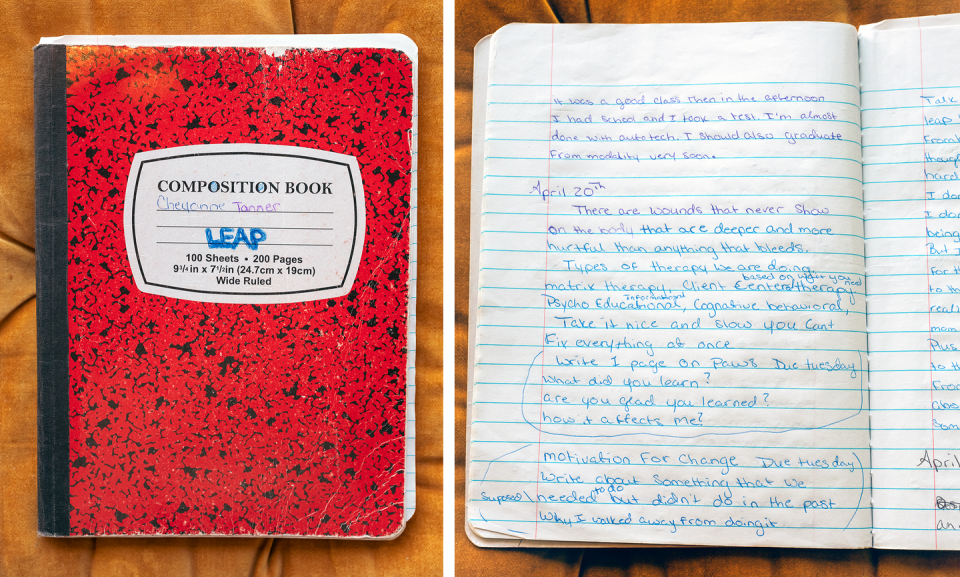 COMPOSITION BOOK
Cheyanne Tanner
LEAP
100 Sheets • 200 Pages
9¾ in x 7½ in (24.7cm x 19cm)
Wide Ruled
It was a good class then in the afternoon
I had school and I took a test. I'm almost
done with autotech. I should also graduate
From modality very soon.
April 20th
There are wounds that never show
on the body that are deeper and more
hurtful than anything that bleeds.
Types of therapy we are doing
based on what you need
matrix therapy, Client Centers therapy
informational
Psycho Educational, Cognative behavioral,
Take it nice and slow you cant
Fix everything at once
Write 1 page on Paws Due tuesday
what did you learn?
are you glad you learned?
how it affects me?
motivation For Change Due tuesday
Write about something that we
Suposed needed to do but didn't do in the past
Why I walked away from doing it
Talk
leap
hard
I do
being
But I
For th
to th
reali
mom
Plus
to th
From
abs
Som
April
an